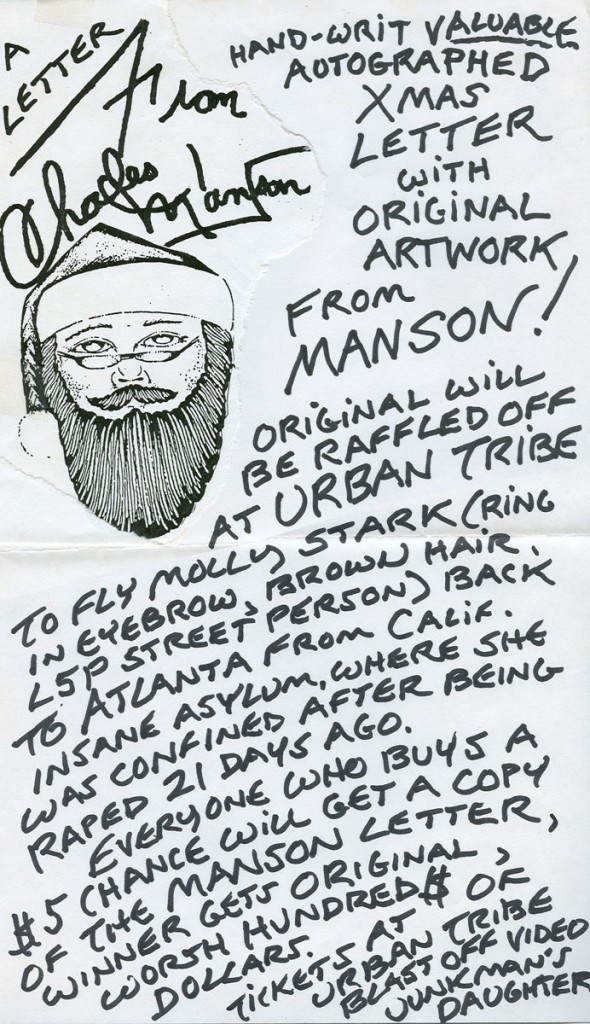 A
LETTER
From
Charles Manson
HAND-WRIT VALUABLE
AUTOGRAPHED
XMAS
LETTER
WITH
ORIGINAL
ARTWORK
FROM
MANSON!
ORIGINAL WILL
BE RAFFLED OFF
AT URBAN TRIBE
TO FLY MOLLY STARK (RING
IN EYEBROW, BROWN HAIR,
L5P STREET PERSON) BACK
TO ATLANTA FROM CALIF.
INSANE ASYLUM, WHERE SHE
WAS CONFINED AFTER BEING
RAPED 21 DAYS AGO.
EVERYONE WHO BUYS A
$5 CHANCE WILL GET A COPY
OF THE MANSON LETTER,
WINNER GETS ORIGINAL,
WORTH HUNDRED$ OF
DOLLARS.
TICKETS AT
URBAN TRIBE
BLAST OFF VIDEO
JUNKMAN'S
DAUGHTER